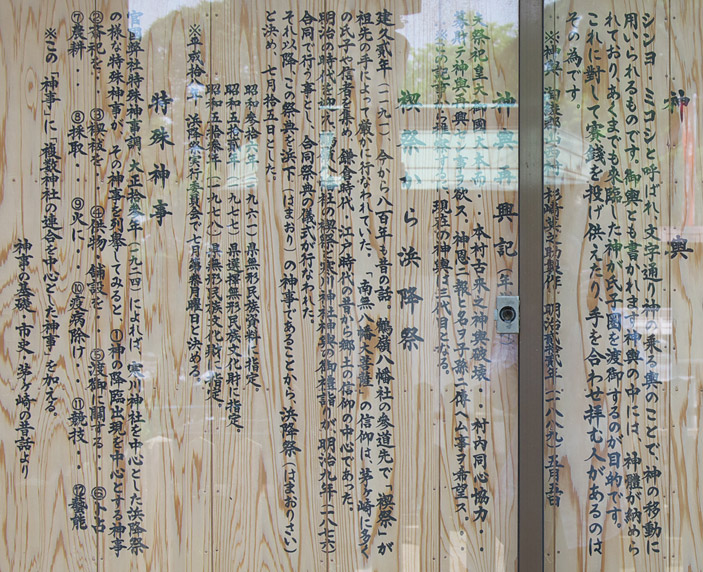 神輿
シンヨ・ミコシと呼ばれ、文字通り神の乗る輿のことで、神の移動に
用いられるものです。御輿とも書かれます。神輿の中には、神體が納めら
れており、あくまでも來臨した神が氏子圏を渡御するのが目的です。
これに対して賽銭を投げ供えたり、手を合わせ拝む人があるのは
その為です。
※神輿 製作 明治貳拾貳年（一八八九）五月五日
神輿再興記（年
本村古來之神輿破壊・・村内同心協力・・
神輿 再興 事ヲ欲ス、神恩ニ報ヒ名ヲ子孫ニ傳ヘム事ヲ希望ス・・
※この記事から推察するに、現在の神輿は三代目となる。
禊祭から浜降祭
建久貳年（一一九一）今から八百年も昔の話。鶴嶺八幡社の参道先で「禊祭」が
祖先の手によって厳かに行なわれていた。「南無八幡大菩薩」の信仰は、茅ヶ崎に多く
の氏子や信者を集め、鎌倉時代・江戸時代の昔から郷土の信仰の中心であった。
明治の時代を迎え、鶴嶺八幡社の禊祭と寒川神社神輿の御禮詣りが明治九年（一八七六）
合同で行う事とし、合同祭典の儀式が行なわれた。
それ以降、この祭典を浜下（はまおり）の神事であることから、浜降祭（はまおりさい）
と決め、七月拾五日とした。
昭和参拾六年（一九六一）県無形民族資料に指定。
昭和五拾貳年（一九七七）県選擇無形民族文化財に指定。
昭和五拾参年（一九七八）県無形民族文化財に指定。
※平成拾八年 浜降祭実行委員会で七月第参月曜日と決める。
特殊神事
官國弊社特殊神事調 大正拾参年（一九二四）によれば、寒川神社を中心とした浜降祭
の様な特殊神事が、その神事を列挙してみると、①神の降臨出現を中心とする神事
②斎祀を・・ ③禊祓を・・ ④供物・舗設を・・ ⑤渡御に関する・・ ⑥卜占
⑦農耕・・ ⑧採取・・ ⑨火に・・ ⑩疫病除け・・ ⑪競技・・ ⑫藝能
※この「神事」に「複数神社の連合を中心とした神事」を加える。
神事の基礎 市史・茅ヶ崎の昔話より